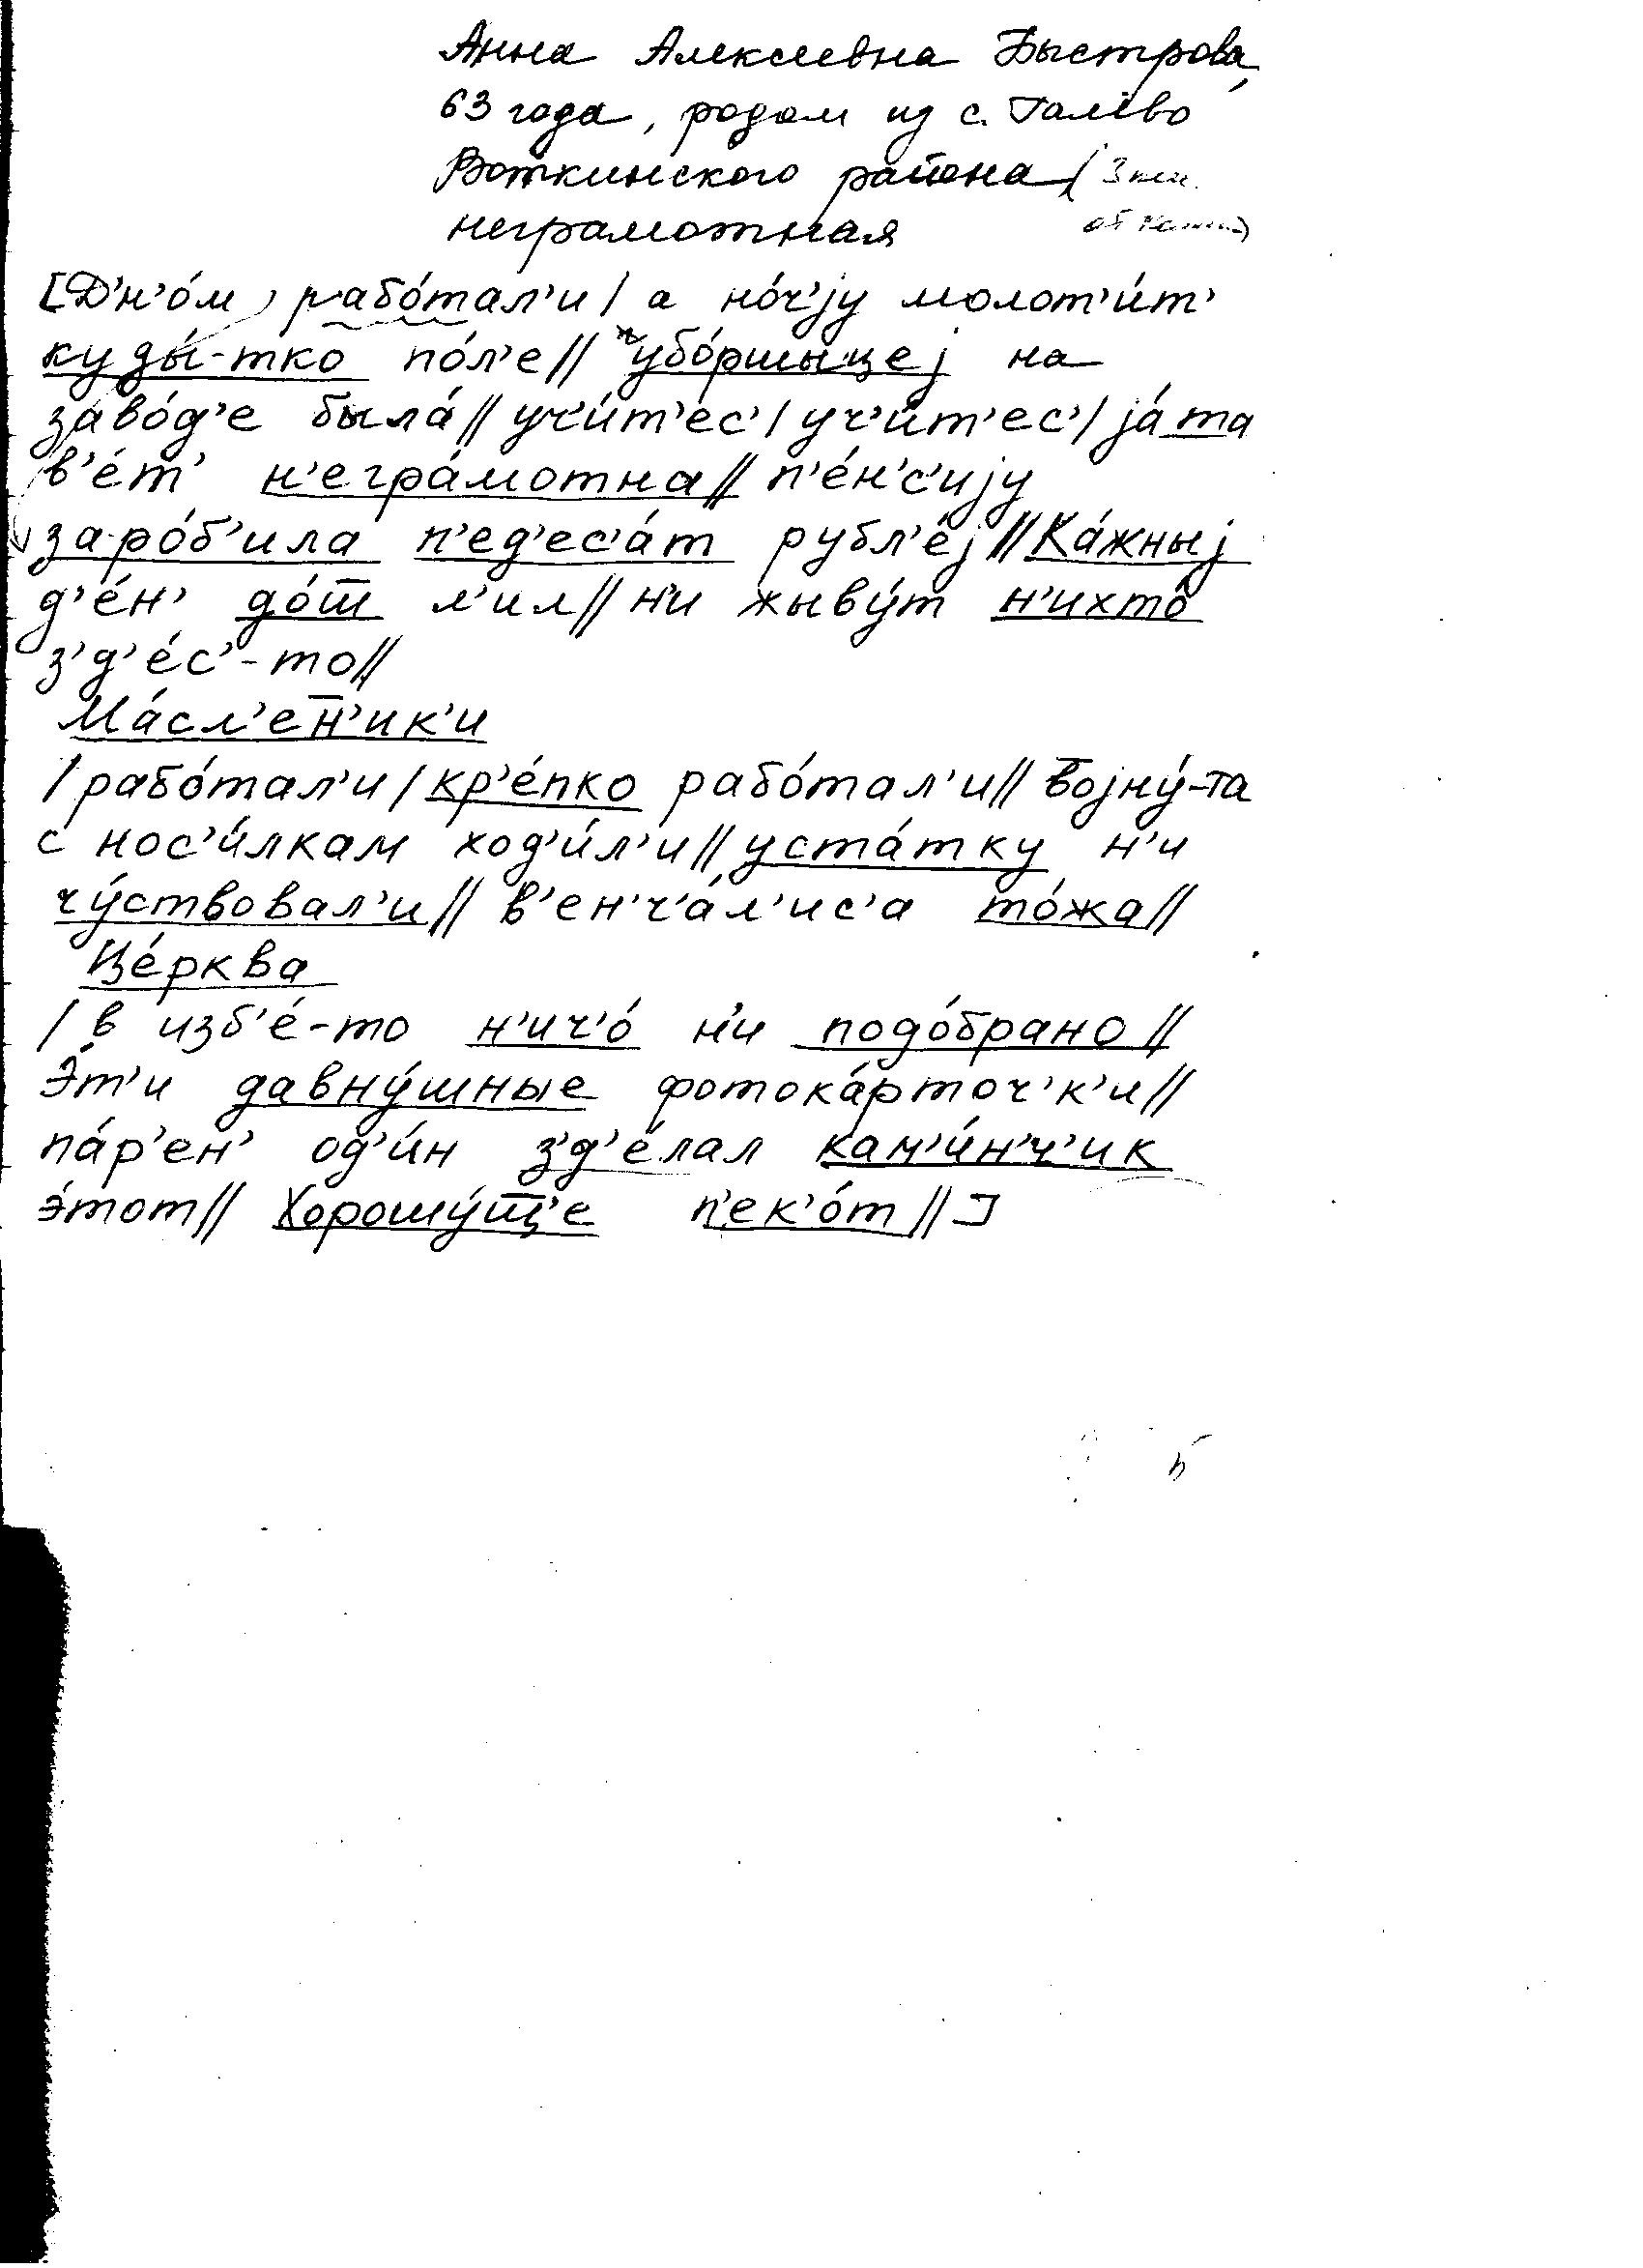 Анна Алексеевна Быстрова,
63 года, родом из с. Галёво
Воткинского района (3 км.
неграмотная
[Д'н'о́м рабо́тал'и / а но́ч'jу молот'и́т'
куды́-тко по́л'е // убо́ршыцеj на
заво́д'е была́ // уч'и́т'ес' / уч'и́т'ес' / jа́ та
в'е́т' н'егра́мотна // п'е́н'с'иjу
заро́б'ила п'ед'ес'а́т рубл'е́j // Ка́жныj
д'е́н' до́т̅ л'ил // н'и жыву́т н'ихто́
з'д'е́с'-то //
Ма́сл'ен̅'ик'и
/ рабо́тал'и / кр'е́пко рабо́тал'и // в̅оjну́-та
с нос'и́лкам ход'и́л'и // уста́тку н'и
чу́ствовал'и // в'ен'ч'а́л'ис'а то́жа //
Це́рква
/ в изб'е́-то н'ич'о́ н'и подо́брано //
Э́т'и давну́шные фотока́рточ'к'и //
па́р'ен' од'и́н з'д'е́лал кам'и́н'ч'ик
э́тот // Хорошу́щ̅'е п'ек'о́т // ]